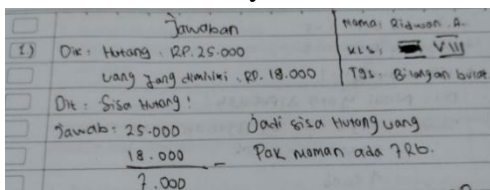 Jawaban
Nama: Ridwan. A.
KLS: VIII
Tgs: Bilangan bulat
1) Dik: Hutang: RP. 25.000
uang yang dimiliki: RP. 18.000
Dit: Sisa Hutang!
Jawab: 25.000
18.000 -
7.000
Jadi sisa Hutang uang
Pak Maman ada 7 Rb.